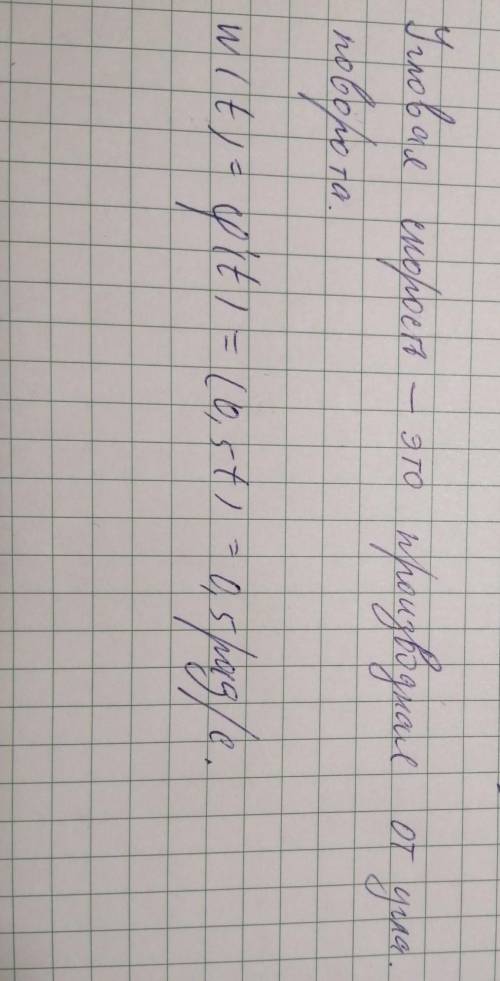 Угловая скорость – это производная от угла.
поворота.
w(t) = φ'(t) = (0,5t) = 0,5 рад/с.